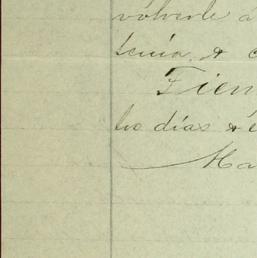 volverle á
tenia. & c
Tien
ho días & é
Ma